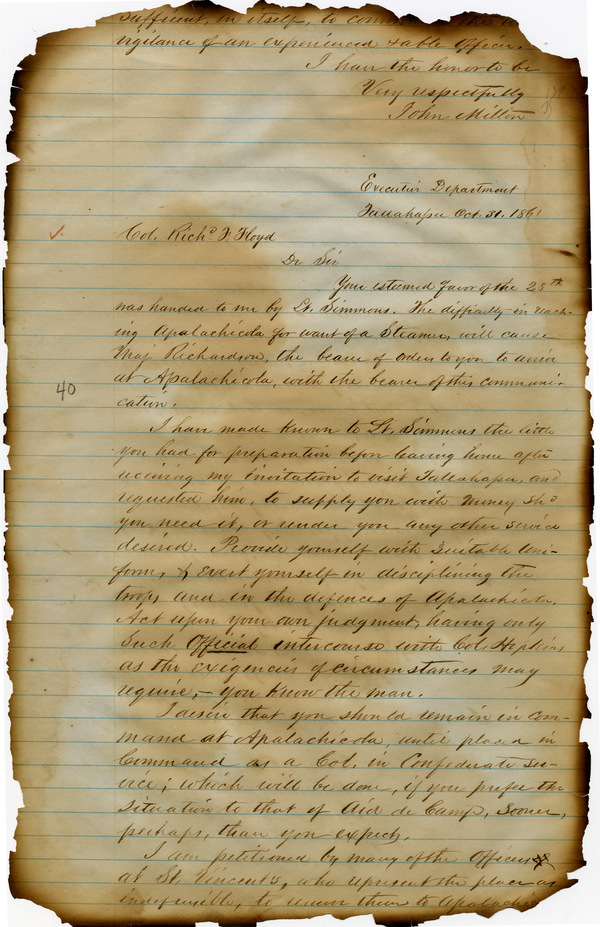 sufficient, in itself, to
vigilance of an experienced & able Officer.
I have the honor to be
Very respectfully
John Milton
Executive Department
Tallahassee Oct. 31. 1861
Col. Richd F. Floyd
Dr Sir
Your esteemed favor of the 28th
was handed to me by Lt. Simmons. The difficulty in reach-
ing Apalachicola for want of a Steamer, will cause
Maj Richardson, the bearer of orders to you to arrive
at Apalachicola, with the bearer of this communi-
cation.
40
I have made known to Lt. Simmons the little
you had for preparation before leaving home after
receiving my invitation to visit Tallahassee, and
requested him, to supply you with money shd
you need it, or render you any other service
desired. Provide yourself with suitable uni-
form, & exert yourself in disciplining the
troops and in the defences of Apalachicola.
Act upon your own judgment, having only
such Official intercourse with Col. Hopkins
as the exigencies of circumstances may
require, – you know the man.
I desire that you should remain in com-
mand at Apalachicola until placed in
Command as a Col. in Confederate ser-
vice; which will be done, if you prefer the
situation to that of Aid de Camp, sooner,
perhaps, than you expect.
I am petitioned by many of the Officers
at St. Vincent's, who represent the place as
indefensible, to remove them to